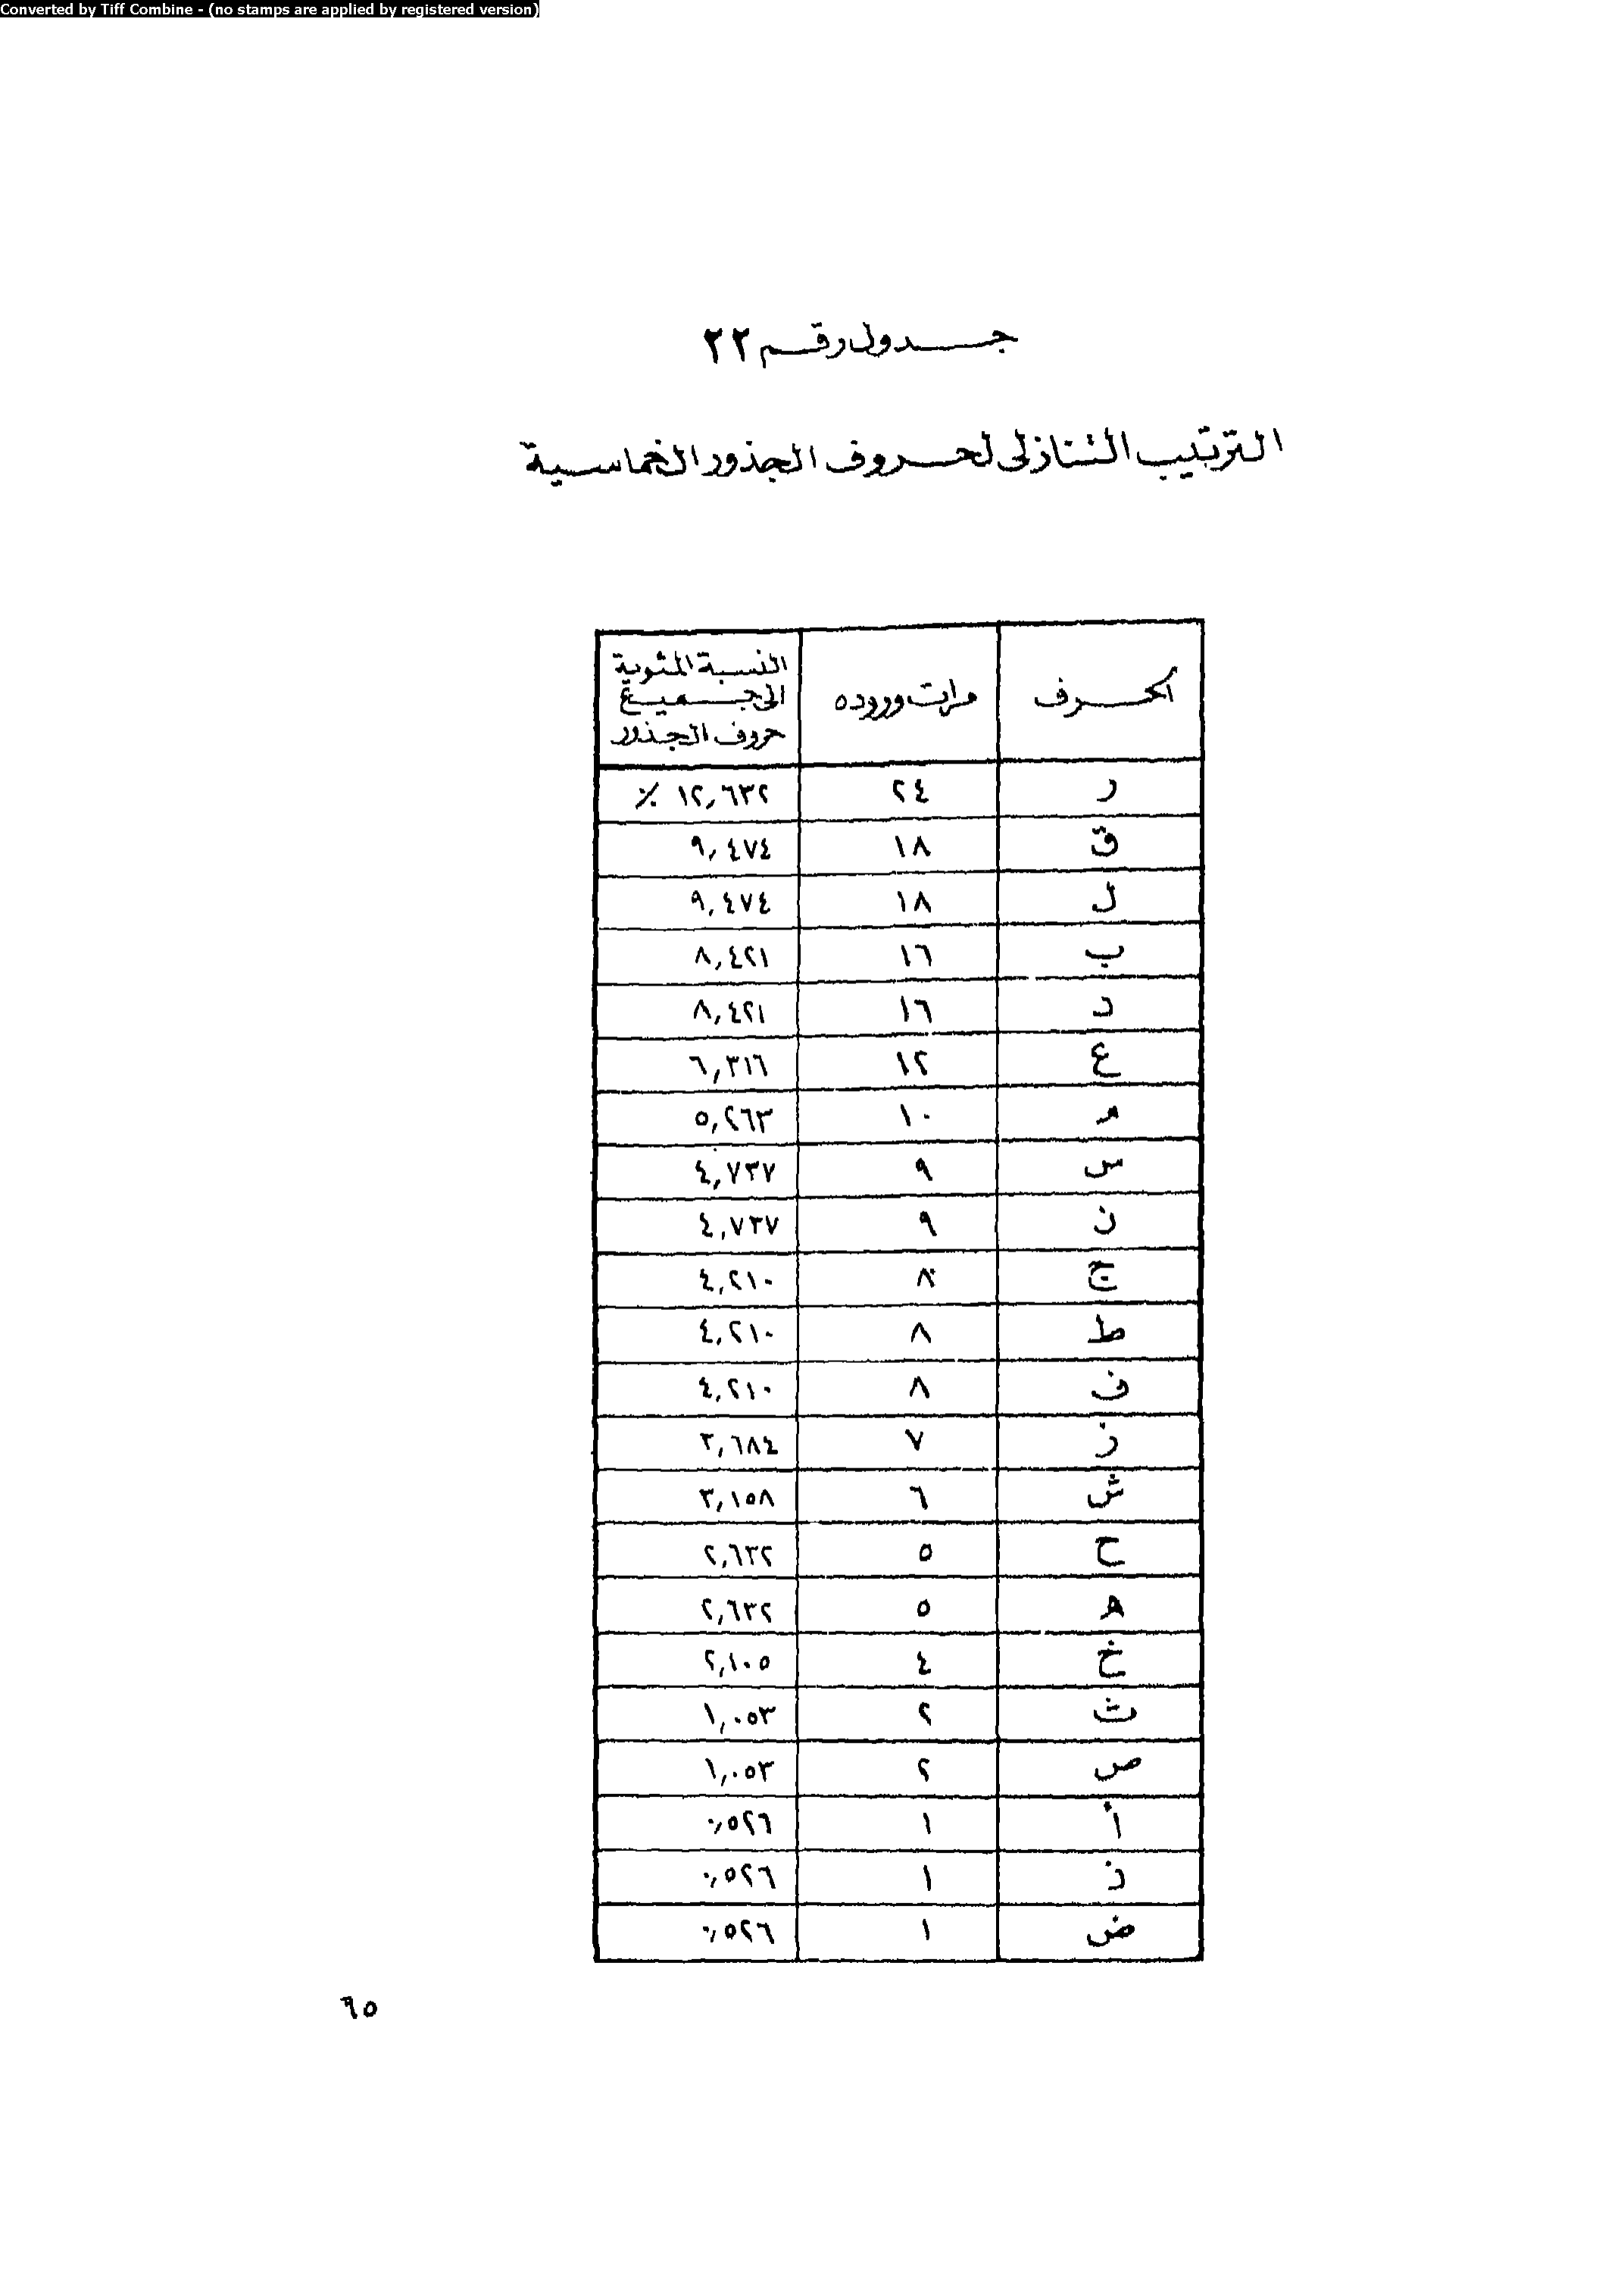 Converted by Tiff Combine - (no stamps are applied by registered version)
جدول رقم ٢٢
الترتيب التنازلى لحروف الجذور الخماسية
الحرف مرات وروده النسبة المئوية
الى جميع
حروف الجذور
ر ٢٤ ١٢,٦٣٢ %
ق ١٨ ٩,٤٧٤
ل ١٨ ٩,٤٧٤
ب ١٦ ٨,٤٢١
د ١٦ ٨,٤٢١
ع ١٢ ٦,٣١٦
م ١٠ ٥,٢٦٣
س ٩ ٤,٧٣٧
ن ٩ ٤,٧٣٧
ج ٨ ٤,٢١٠
ط ٨ ٤,٢١٠
ف ٨ ٤,٢١٠
ز ٧ ٣,٦٨٤
ش ٦ ٣,١٥٨
ح ٥ ٢,٦٣٢
ه ٥ ٢,٦٣٢
خ ٤ ٢,١٠٥
ث ٢ ١,٠٥٣
ص ٢ ١,٠٥٣
أ ١ ٠,٥٢٦
ذ ١ ٠,٥٢٦
ض ١ ٠,٥٢٦
٦٥